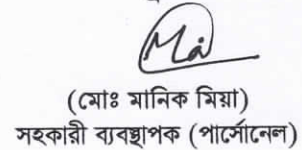 (মোঃ মানিক মিয়া)
সহকারী ব্যবস্থাপক (পার্সোনেল)